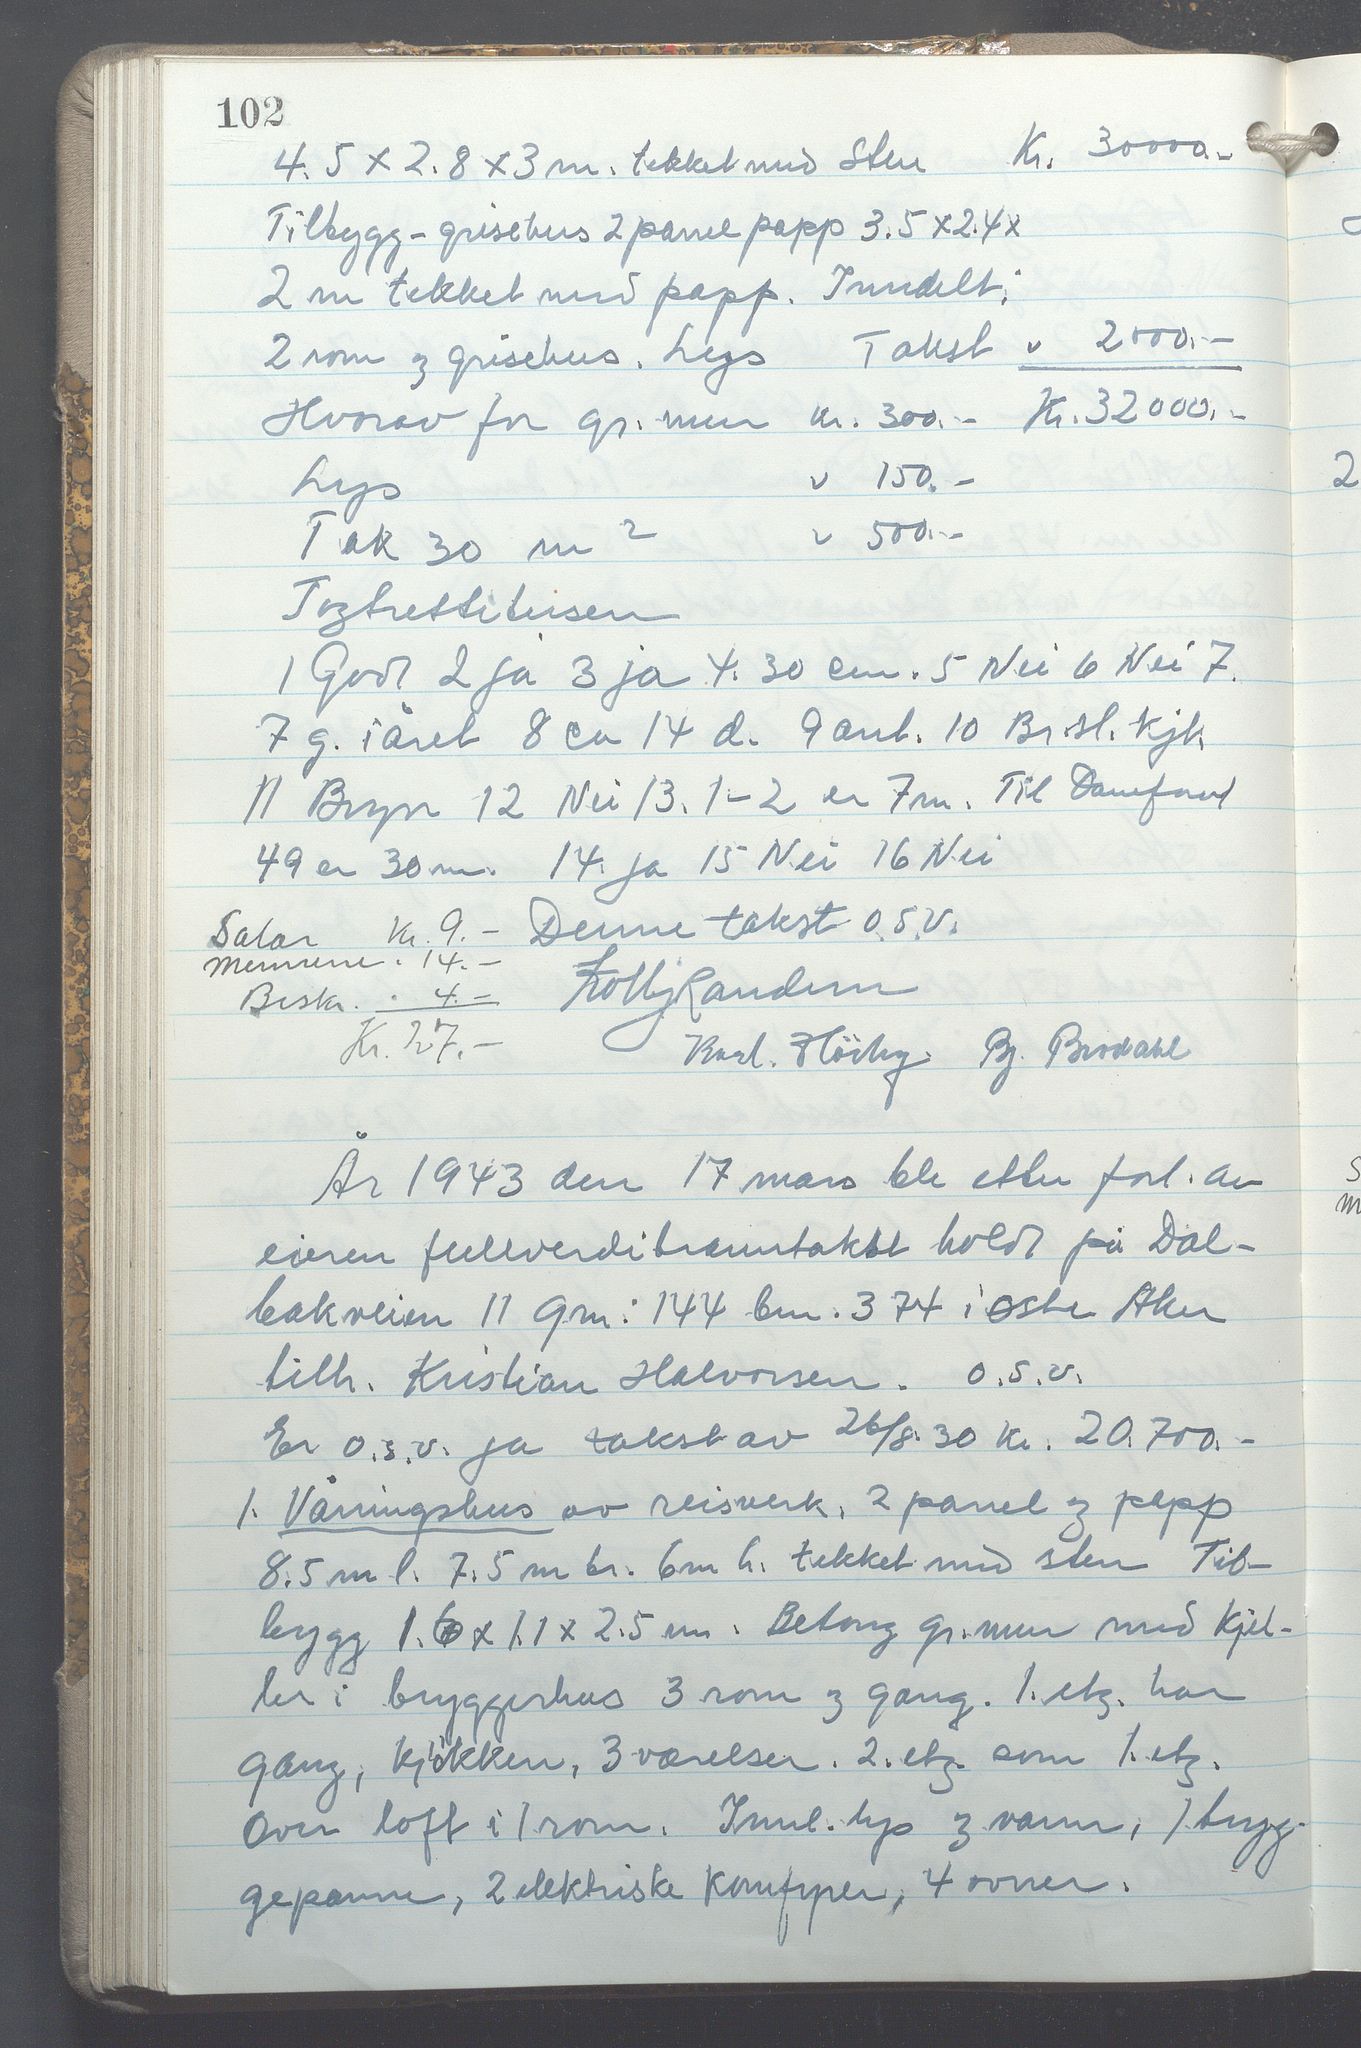 102
4.5 x 2.8 x 3 m. tekket med sten Kr. 30000.-
Tilbygg - grisehus 2 panel papp 3.5 x 2.4 x
2 m tekket med papp. Inndelt:
2 rom & grisehus. Lys Takst " 2000.-
Hvorav for gr. mur kr. 300.- Kr. 32000.-
Lys " 150.-
Tak 30 m2 " 500.-
Togtrettitusen
1 God 2 ja 3 ja 4. 30 cm. 5 Nei 6 Nei 7.
7 g. i året 8 ca 14 d. 9 ant. 10 Br.st. kjk
11 Bryn 12 Nei 13. 1-2 er 7 m. Til
49 er 30 m. 14. ja 15 Nei 16 Nei
Salar Kr. 9.- Denne takst o.s.v.
Mennene . 14.-
Beskr. . 4.-
Kr. 27.-
Høiby Bj. Brodahl
År 1943 den 17 mars ble etter forl. av
eieren fullverdibranntakst holdt på Dal-
bakveien 11 Gnr: 144 bnr. 374 i østre Aker
tilh. Kristian Halvorsen. o.s.v.
Er o.s.v. ja takst av 26/8.30 Kr. 20.700.-
1. Våningshus av reisverk, 2 panel & papp
8.5 m l. 7.5 m br. 6m h. tekket med sten Til-
bygg 1.6 x 1.1 x 2.5 m. Betong gr.mur med kjel-
ler i bryggerhus 3 rom & gang. 1. etg. har
gang, kjøkken, 3 værelser. 2. etg. som 1. etg.
Over loft i 1 rom. Innl. lys & vann, 1 bryg-
gepanne, 2 elektriske komfyrer, 4 ovner.